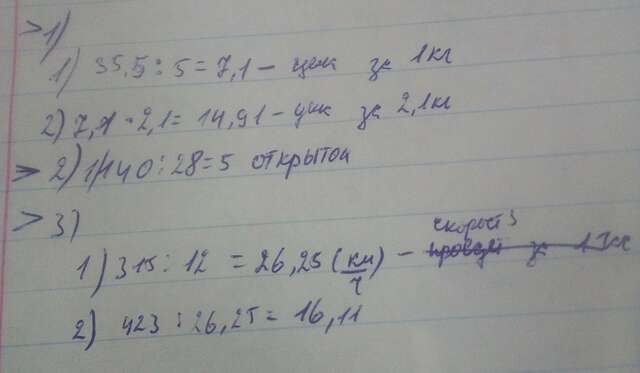 >1)
1) 35,5 : 5 = 7,1 - цена за 1 кг
2) 7,1 · 2,1 = 14,91 - цена за 2,1 кг
> 2) 1) 140 : 28 = 5 открыток
> 3)
скорость
1) 315 : 12 = 26,25 (км/ч) -
2) 423 : 26,25 = 16,11